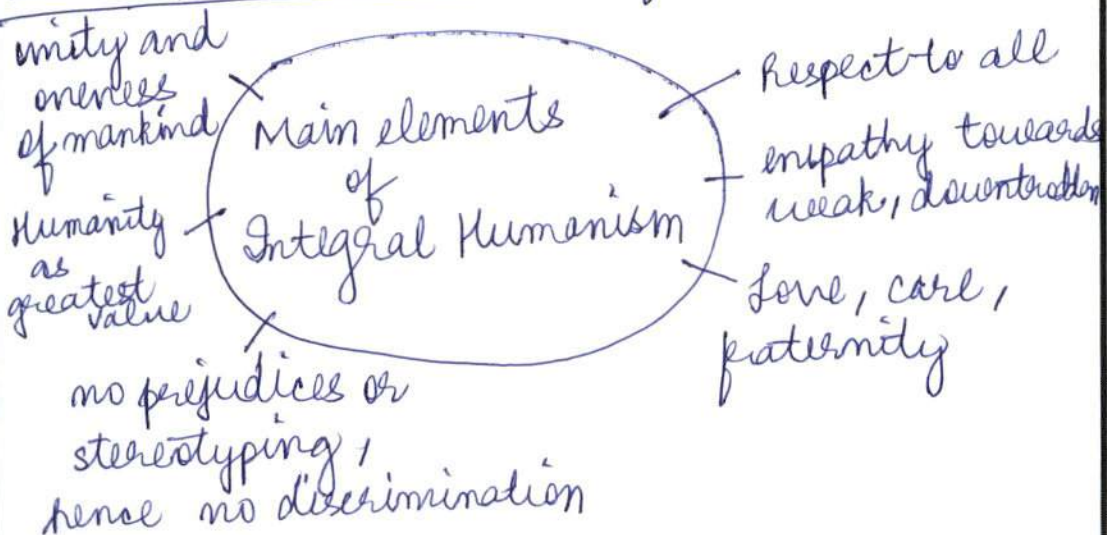 Main elements
of
Integral Humanism
unity and
oneness
of mankind
Humanity
as
greatest
value
no prejudices or
stereotyping,
hence no discrimination
Respect to all
empathy towards
weak, downtrodden
Love, care,
fraternity